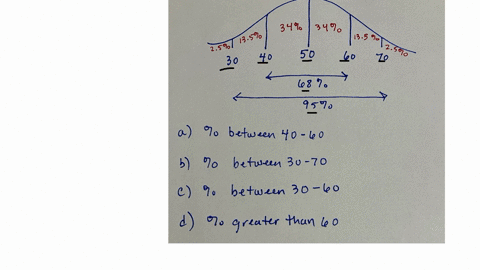 2.5% 13.5% 34% 34% 13.5% 2.5%
30 40 50 60 70
68%
95%
a) % between 40-60
b) % between 30-70
c) % between 30-60
d) % greater than 60